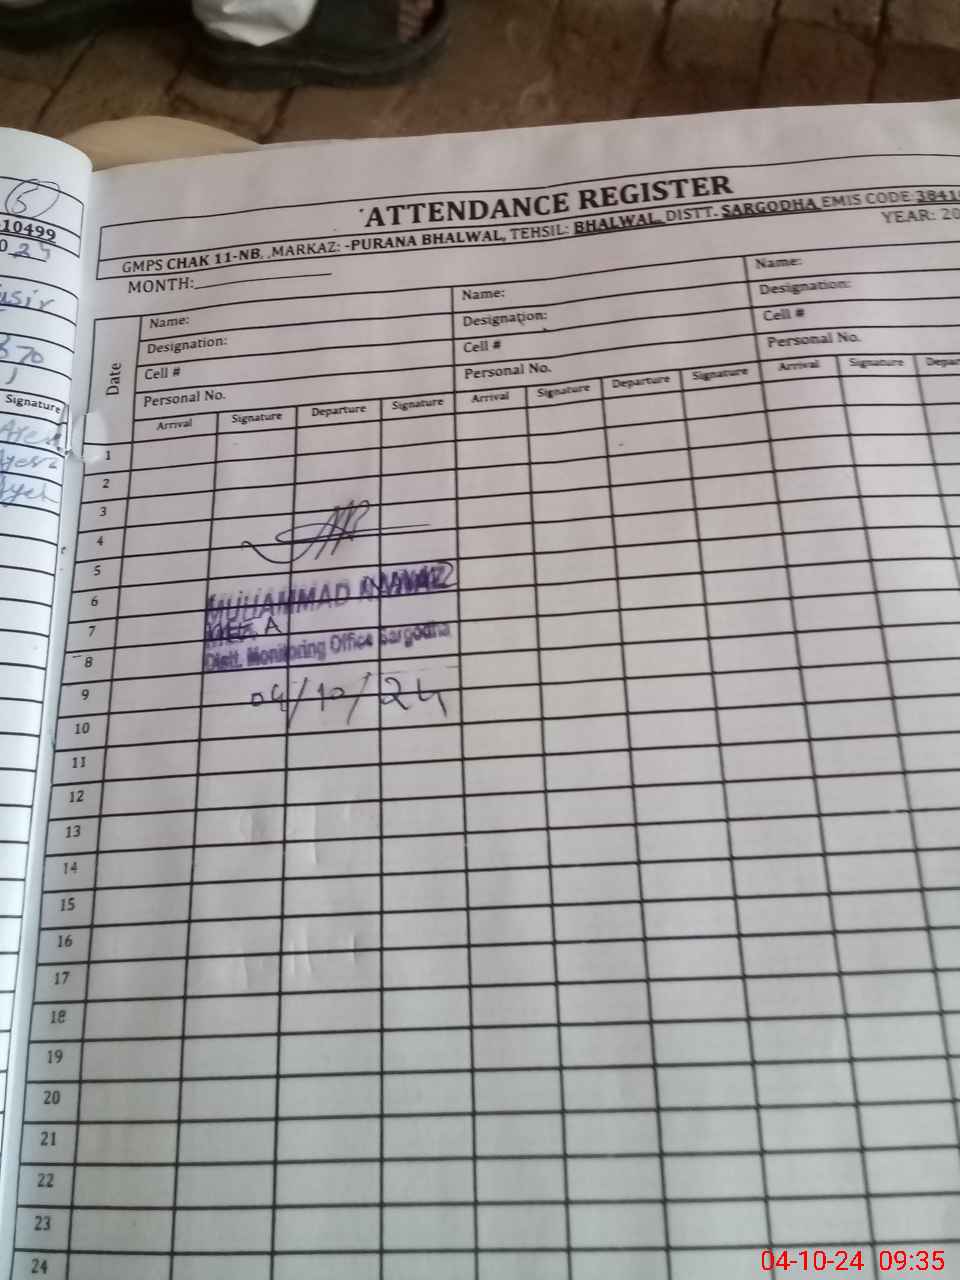 6
10499
0 24
Signature
ATTENDANCE REGISTER
GMPS CHAK 11-NB, ,MARKAZ: -PURANA BHALWAL, TEHSIL: BHALWAL, DISTT. SARGODHA EMIS CODE 3841
MONTH:
YEAR: 20
Date
Name:
Designation:
Cell #
Personal No.
Arrival Signature Departure Signature
Name:
Designation:
Cell #
Personal No.
Arrival Signature Departure Signature
Name:
Designation:
Cell #
Personal No.
Arrival Signature Depar
1
2
3
4
5
6
7
8
9
10
11
12
13
14
15
16
17
18
19
20
21
22
23
24
MUHAMMAD NAWAZ
MEA
Distt. Monitoring Office Sargodha
04/10/24
04-10-24 09:35